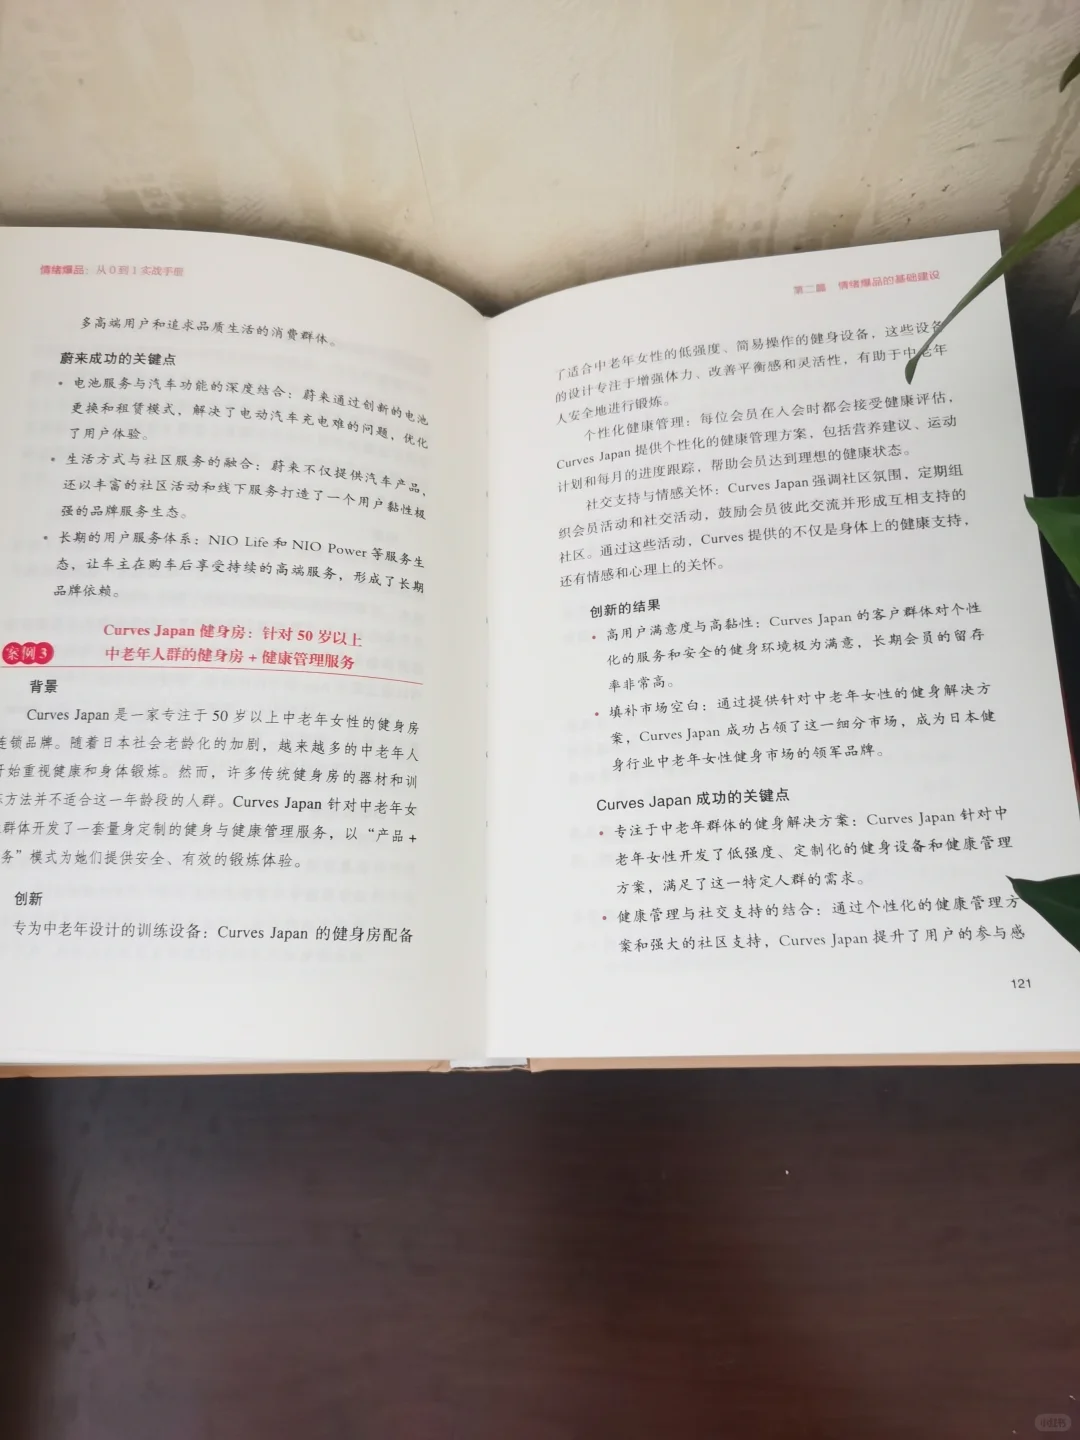 情绪爆品：从0到1实战手册
多高端用户和追求品质生活的消费群体。
蔚来成功的关键点
• 电池服务与汽车功能的深度结合：蔚来通过创新的电池
更换和租赁模式，解决了电动汽车充电难的问题，优化
了用户体验。
• 生活方式与社区服务的融合：蔚来不仅提供汽车产品，
还以丰富的社区活动和线下服务打造了一个用户黏性极
强的品牌服务生态。
• 长期的用户服务体系：NIO Life 和 NIO Power 等服务生
态，让车主在购车后享受持续的高端服务，形成了长期
品牌依赖。
案例3
Curves Japan 健身房：针对 50 岁以上
中老年人群的健身房 + 健康管理服务
背景
Curves Japan 是一家专注于 50 岁以上中老年女性的健身房
连锁品牌。随着日本社会老龄化的加剧，越来越多的中老年人
开始重视健康和身体锻炼。然而，许多传统健身房的器材和训
方法并不适合这一年龄段的人群。Curves Japan 针对中老年女
群体开发了一套量身定制的健身与健康管理服务，以“产品 +
务”模式为她们提供安全、有效的锻炼体验。
创新
专为中老年设计的训练设备：Curves Japan 的健身房配备
第二篇 情绪爆品的基础建设
了适合中老年女性的低强度、简易操作的健身设备，这些设备
的设计专注于增强体力、改善平衡感和灵活性，有助于中老年
人安全地进行锻炼。
个性化健康管理：每位会员在入会时都会接受健康评估，
Curves Japan 提供个性化的健康管理方案，包括营养建议、运动
计划和每月的进度跟踪，帮助会员达到理想的健康状态。
社交支持与情感关怀：Curves Japan 强调社区氛围，定期组
织会员活动和社交活动，鼓励会员彼此交流并形成互相支持的
社区。通过这些活动，Curves 提供的不仅是身体上的健康支持，
还有情感和心理上的关怀。
创新的结果
• 高用户满意度与高黏性：Curves Japan 的客户群体对个性
化的服务和安全的健身环境极为满意，长期会员的留存
率非常高。
• 填补市场空白：通过提供针对中老年女性的健身解决方
案，Curves Japan 成功占领了这一细分市场，成为日本健
身行业中老年女性健身市场的领军品牌。
Curves Japan 成功的关键点
• 专注于中老年群体的健身解决方案：Curves Japan 针对中
老年女性开发了低强度、定制化的健身设备和健康管理
方案，满足了这一特定人群的需求。
• 健康管理与社交支持的结合：通过个性化的健康管理方
案和强大的社区支持，Curves Japan 提升了用户的参与感
121
小红书